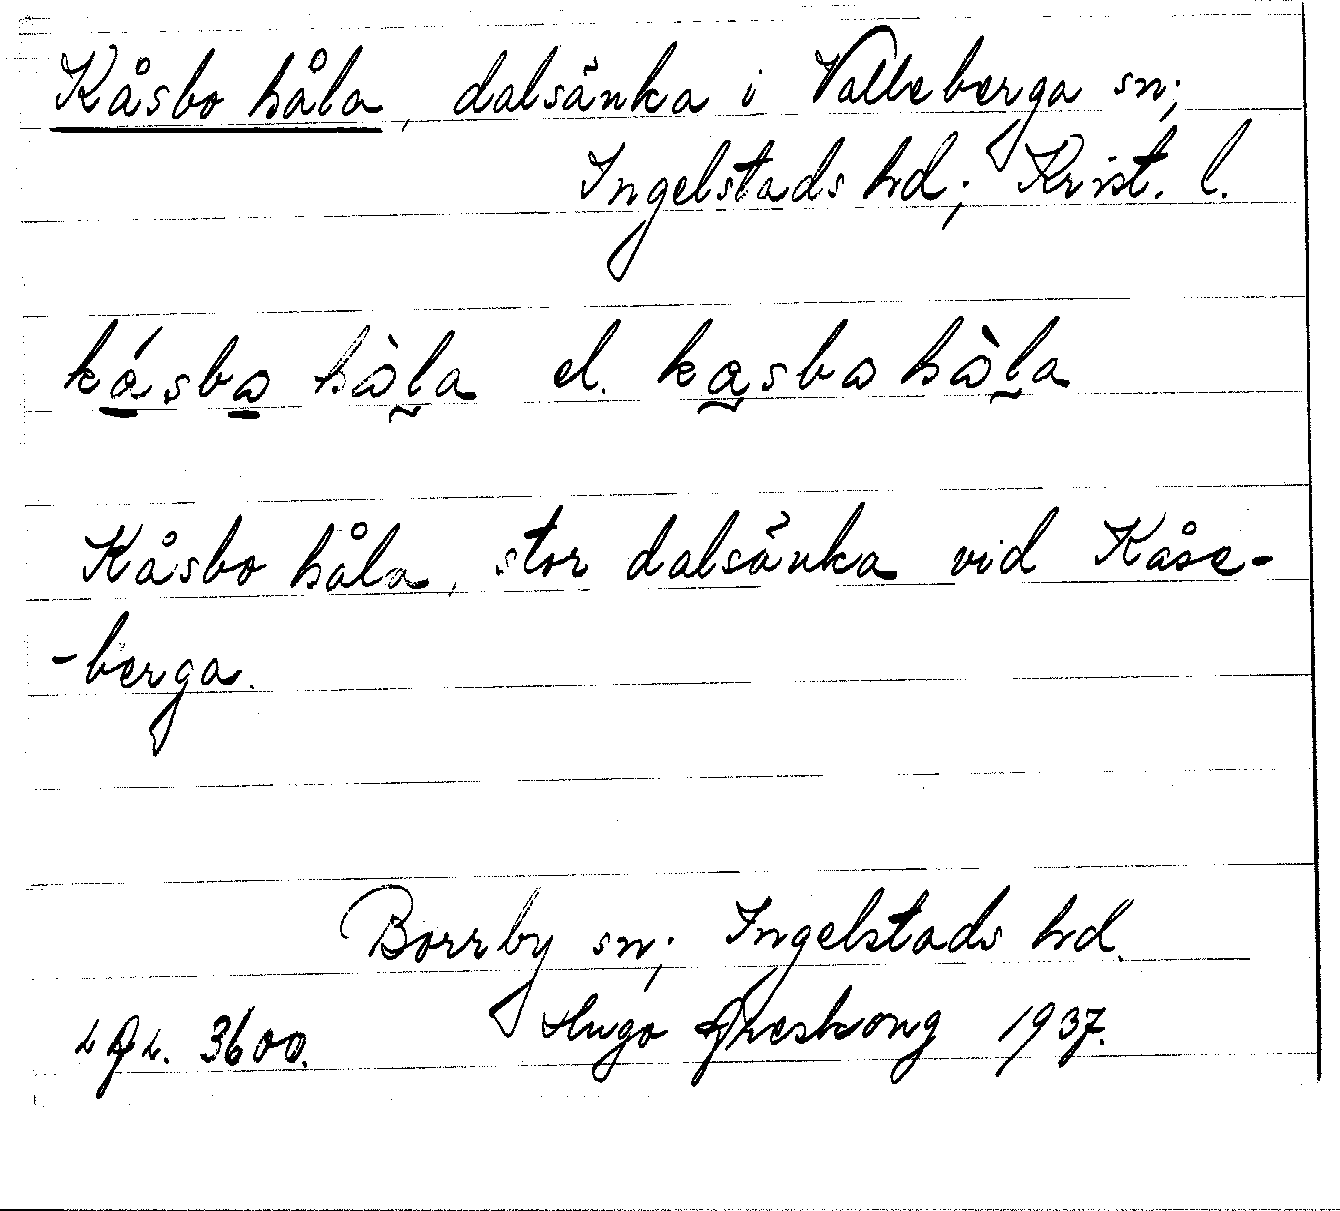 Kåsbo håla, dalsänka i Valleberga sn;
Ingelstads hd; Krist. l.
kásba hàla el. kasba hàla
Kåsbo håla, stor dalsänka vid Kåse-
-berga.
Borrby sn; Ingelstads hd.
3600. Hugo 1937.